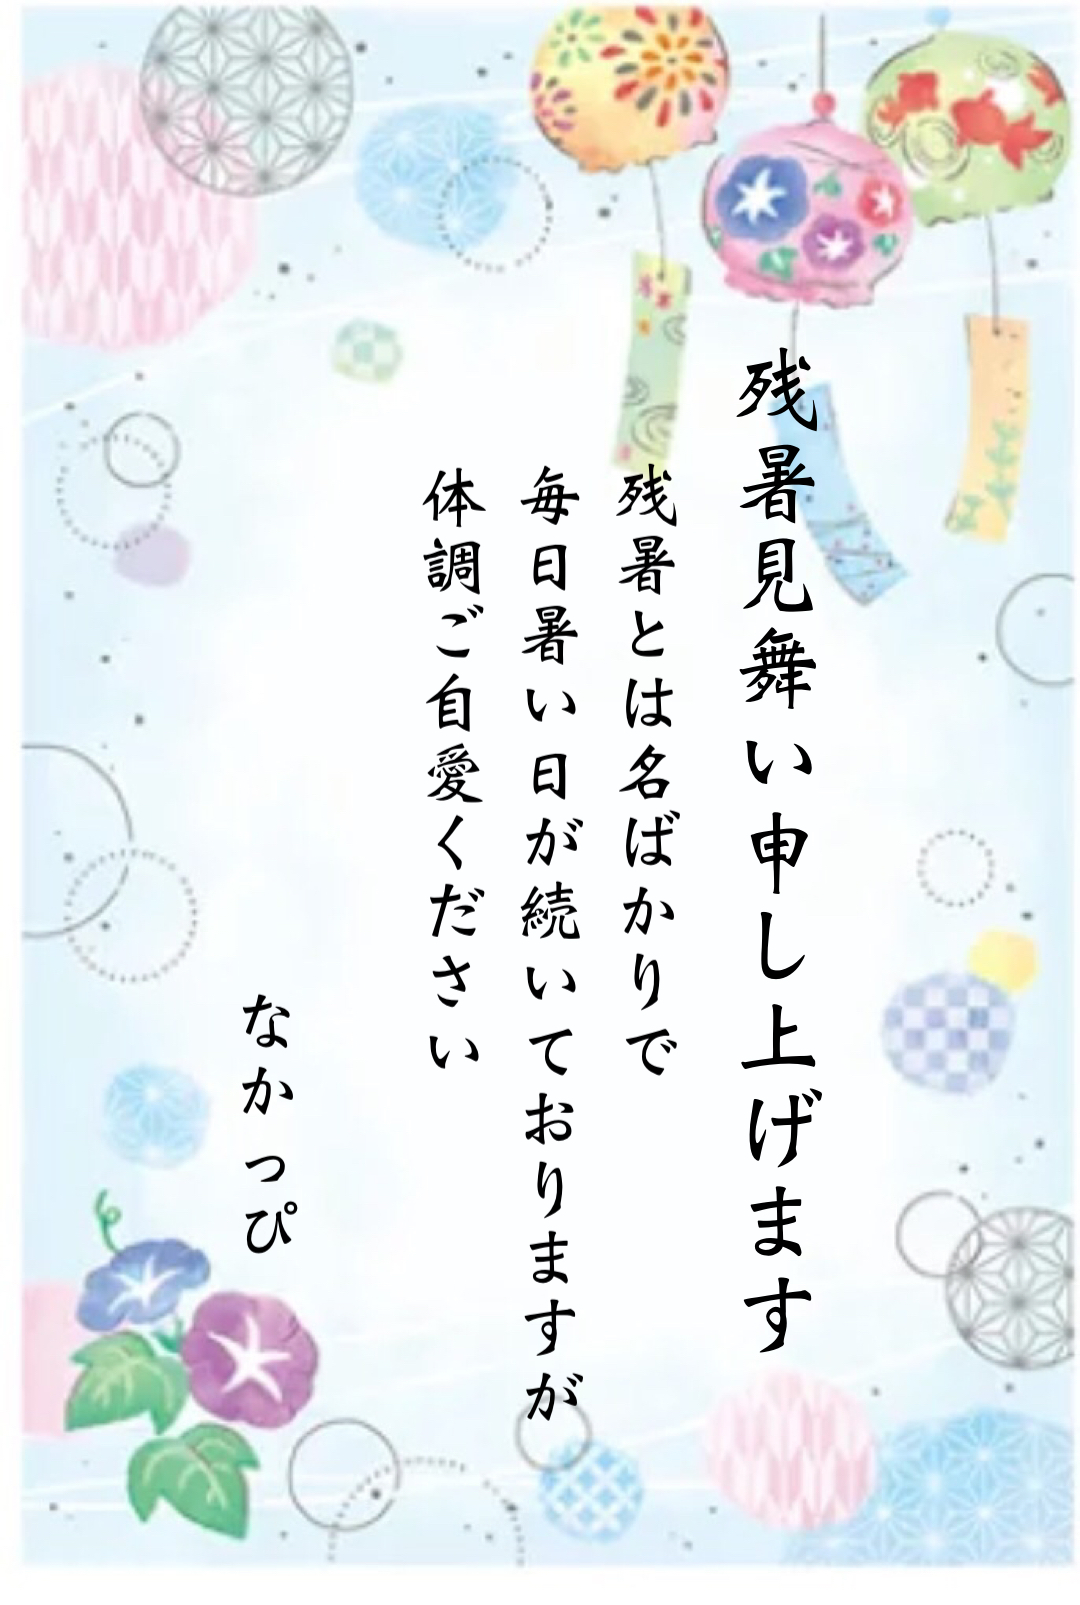 残暑見舞い申し上げます
残暑とは名ばかりで
毎日暑い日が続いておりますが
体調ご自愛ください
なかっぴ